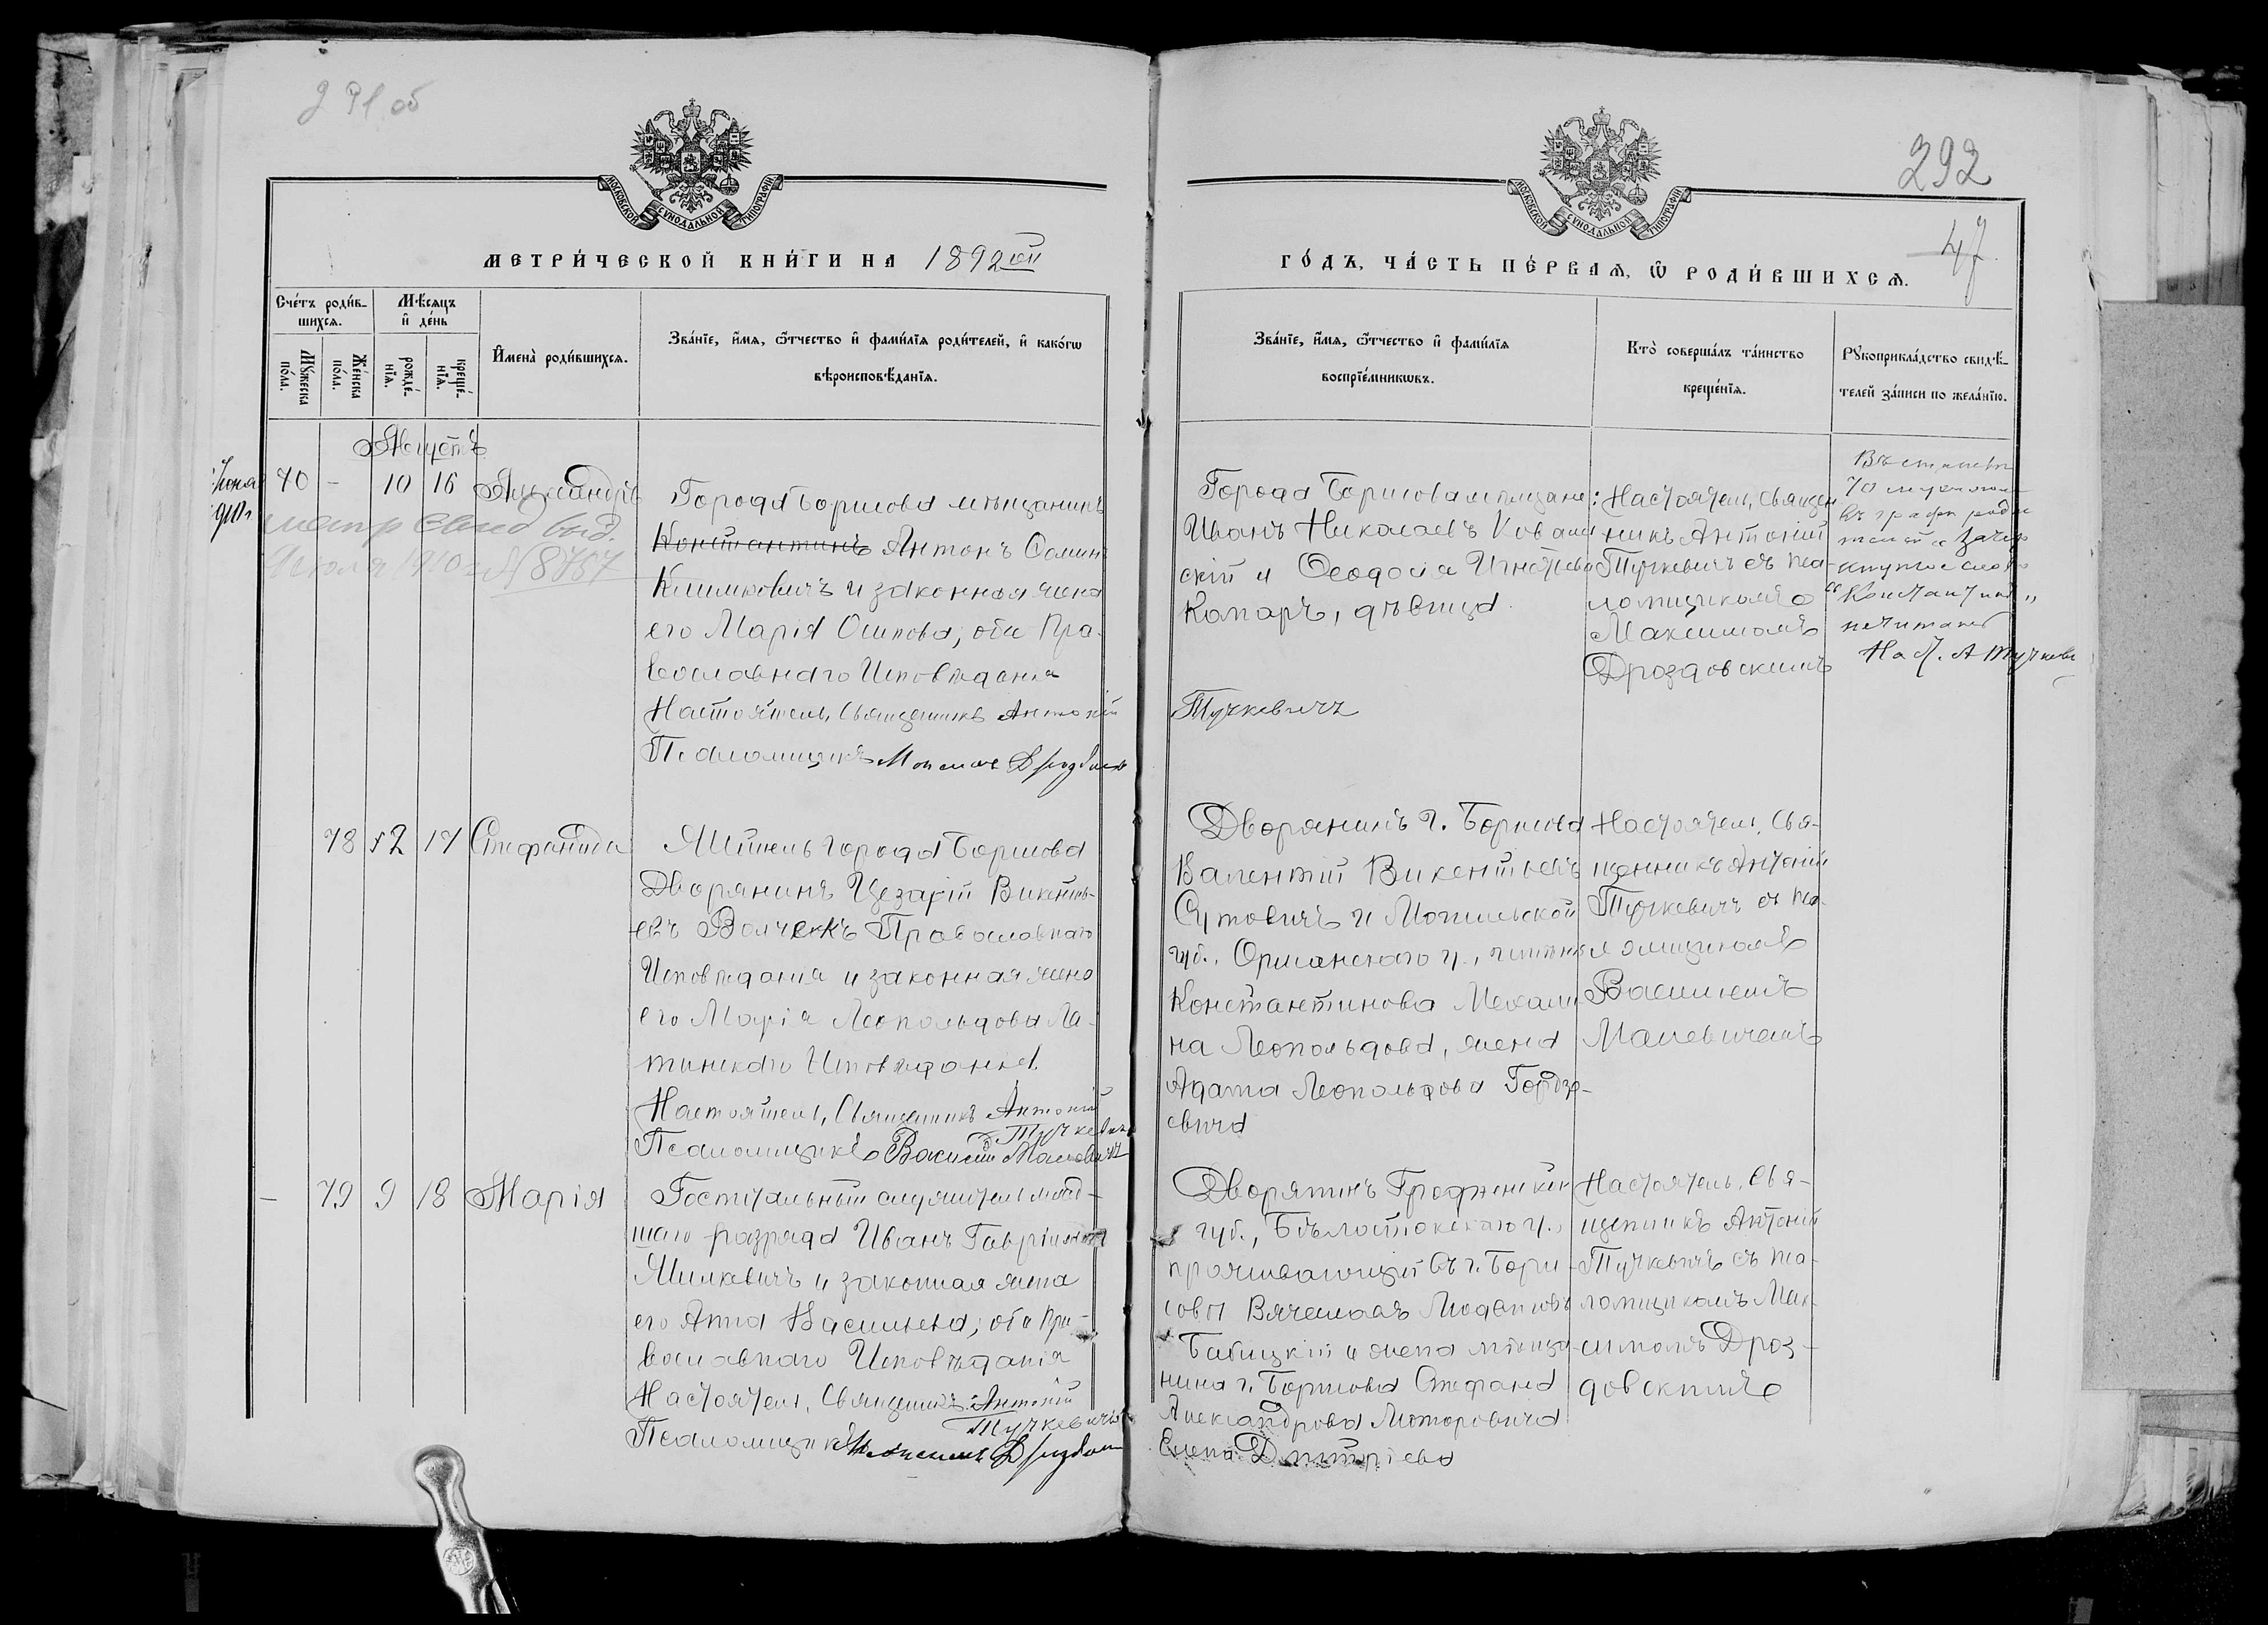 291 об
МОСКОВСКОЙ СѴНОДАЛЬНОЙ ТИПОГРАФІИ
МЕТРИ́ЧЕСКОЙ КНИ́ГИ НА 1892ой
Сче́тъ роди́в-
шихсѧ.
Мѣ́сѧцъ
и҆ де́нь
Мꙋ́жеска
по́ла.
Же́нска
по́ла.
рожде́-
нїѧ.
креще́-
нїѧ.
И҆мена̀ роди́вшихсѧ.
Зва́нїе, и҆́мѧ, ѻ҆́тчество и҆ фами́лїѧ роди́телей, и҆ како́гѡ
вѣроисповѣ́данїѧ.
Августъ
70 - 10 16 Александръ
Города Борисова мѣщанинъ
Константинъ Антонъ Саmин
Климковичъ и законная жена
его Марія Осипова, оба Пра-
вославнаго Исповѣданія
Настоятель, Священникъ Антоній
Псаломщикъ Максимъ Дроздовскій
метр свид выд.
Июля 1910 № 8757
78 12 17 Стефанида
Житель города Борисова
Дворянинъ Цезарій Викенть-
евъ Волчекъ Православнаго
Исповѣданія и законная жена
его Марія Леопольдова Ла-
тинскаго Исповѣданія.
Настоятель, Священникъ Антоній
Тучкевичъ
Псаломщикъ Василій Малевичъ
- 79 9 18 Марія
Госпитальный служитель млад-
шаго разряда Иванъ Гавріиловъ
Милкевичъ и законная жена
его Анна Васильева, оба Пра-
вославнаго Исповѣданія
Настоятель, Священникъ Антоній
Тучкевичъ
Псаломщикъ Максимъ Дроздовскій
292
МОСКОВСКОЙ СѴНОДАЛЬНОЙ ТИПОГРАФІИ
47
ГО́ДЪ, ЧА́СТЬ ПЕ́РВАѦ, Ѡ҆ РОДИ́ВШИХСѦ.
Зва́нїе, и҆́мѧ, ѻ҆́тчество и҆ фами́лїѧ
воспрїе́мникѡвъ.
Кто̀ соверша́лъ та́инство
креще́нїѧ.
Рꙋкоприкла́дство свидѣ́-
телей за́писи по жела́нїю.
Города Борисова мѣщане:
Иванъ Николаевъ Ковалев
скій и Ѳеодосія Игнатьева
Комаръ, дѣвица.
Тучкевичъ
Настоятель, Священ
никъ Антоній
Тучкевичъ съ пса-
ломщикомъ
Максимомъ
Дроздовскимъ
Въ статьѣ
70 муж пола
въ графѣ роди
телей зачер
кнутое слово
"Константинъ"
не читать
Наст. А Тучкевич
Дворянинъ г. Борисова
Валентій Викентьевъ
Сутовичъ и Могилевской
губ., Оршанскаго у.,
Константинова
на Леопольдова, жена
Адама Леопольдова Гордзе-
евича
Настоятель, Свя-
щенникъ Антоній
Тучкевичъ съ пса-
ломщикомъ
Василіемъ
Малевичемъ
Дворянинъ Гродненской
губ., Бѣлостокскаго у.,
проживающій въ г. Бори-
совѣ Вячеславъ
Бабицкій и жена мѣща-
нина г. Борисова Стефана
Александрова Моторовича
Елена Дмитріева
Настоятель, Свя-
щенникъ Антоній
Тучкевичъ съ пса-
ломщикомъ Мак-
симомъ Дроз-
довскимъ